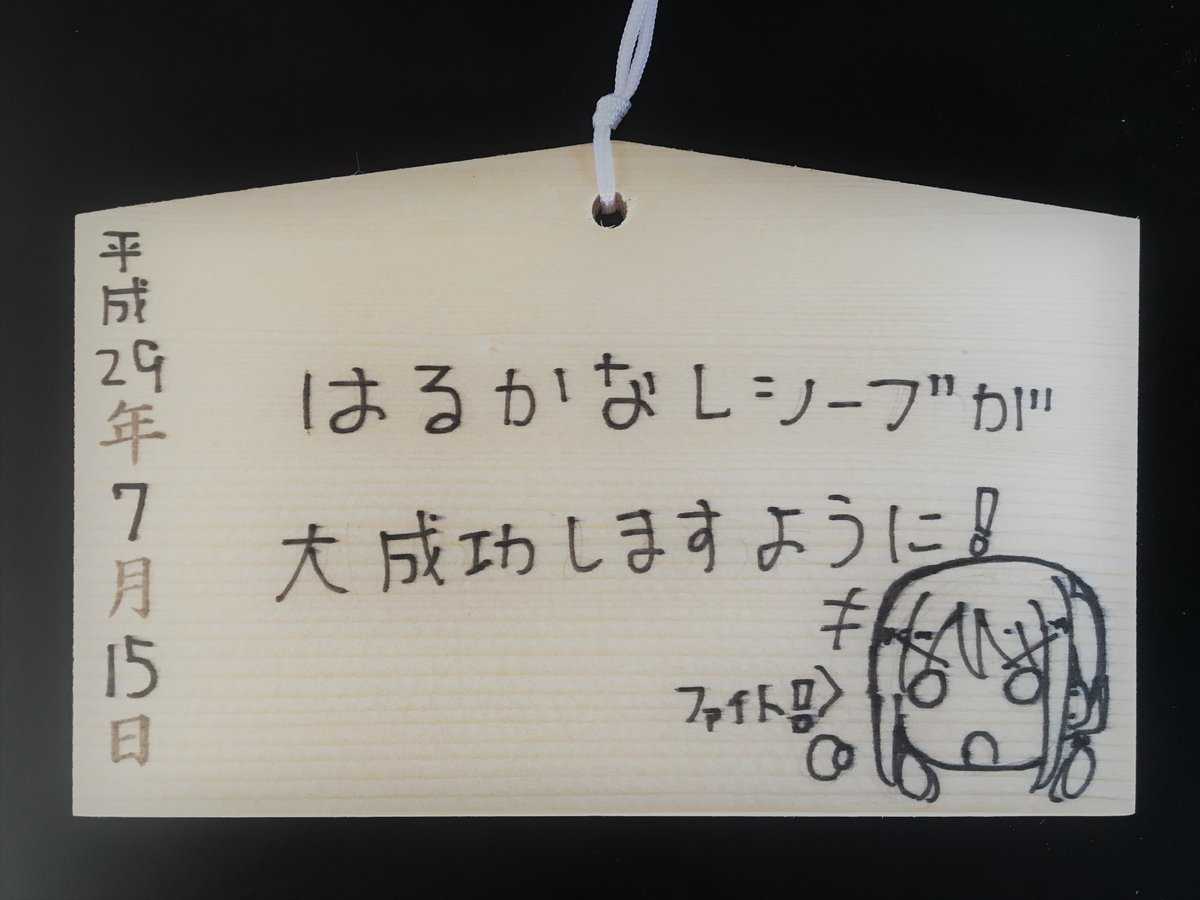 平成29年7月15日
はるかなレシーブが
大成功しますように!
ファイト!!